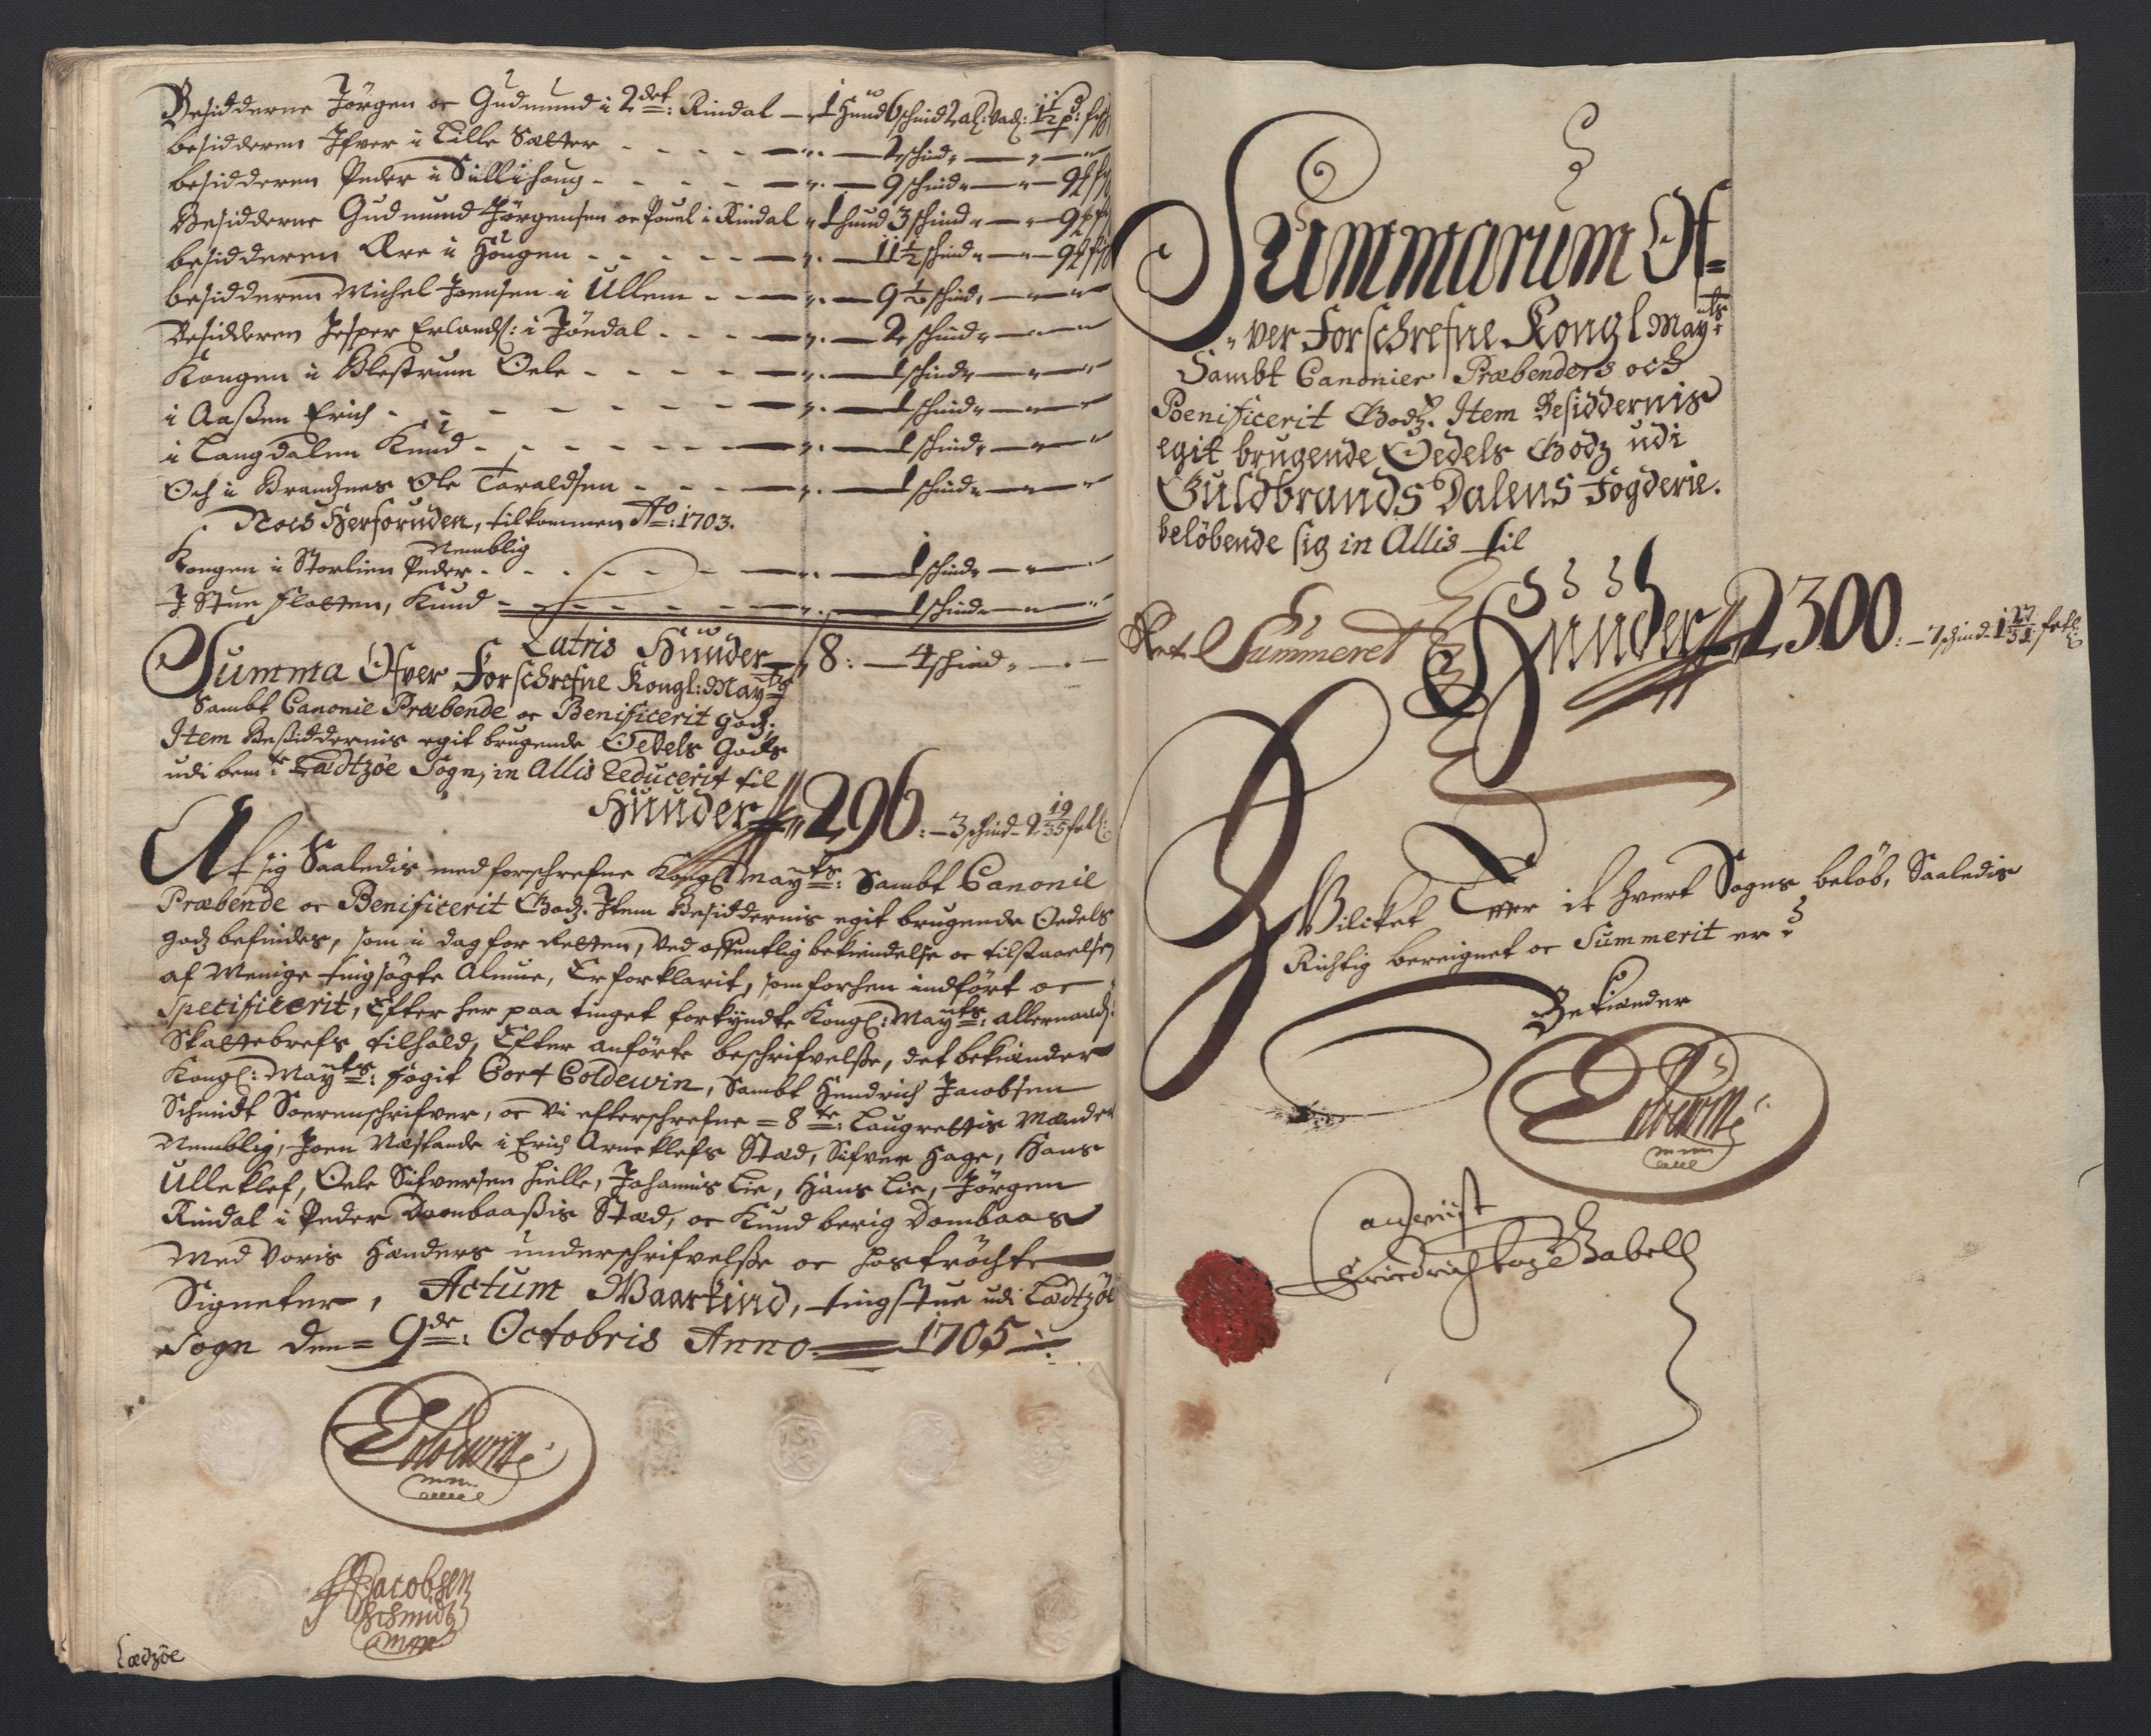 Besidderne Jörgen oc Gudmund i 2det: Rindal — 1 Hund 6 schind 2 al: vad: 1½ p:
besidderen Ifver i Lille Sætter - - - - 2 schind
besidderen Peder i Sillihoug - - - - 9 schind
Besidderne Gudmund Jörgensen oc Pouel i Rindal 1 hund 3 schind
besidderen Are i Hougen - - - - 11½ schind
besidderen Michel Joensen i Ullem - - 9½ schind
Besidderen Jesper Erlands: i Jöndal - - - 2 schind
Kongen i Blestrum Oele - - - - 1 schind
i Aaßen Erich - - - - 1 schind
i Langdalen Knud - - - - 1 schind
Och i Brandnes Ole Taraldsen - - - 1 schind
Noch Herforuden, tilkommen Ao: 1703.
Nemblig
Kongen i Storlien Peder - - - - 1 schind
I Stue Flatten, Knud - - - - 1 schind
Latris Hunder 8: — 4 schind
Summa Ofver Forschrefne Kongl: Mayts
Sambt Canonie Præbende oc Benificerit godz;
Item Besiddernis egit brugende Oedels Godts
udi bemte: Lædtzöe Sogn, in Allis Reducerit til
Hunder 296: — 3 schind 2 19/35
At sig Saaledis med forschrefne Kongl Mayts: Sambt Canonie
Præbende oc Benificerit Godz. Item Besiddernis egit brugende Oedels
godz befindes, som i dag for Retten, ved offentlig bekiendelse oc tilstaaelse
af Menige tingsögte Almue, Er forklarit, som forhen indfört oc
Specificerit, Efter her paa tinget forkyndte Kongl: Mayts: allernaad:
Skattebrefs tilhold, Efter anförte beschrifvelße, det bekiænder
Kongl: Mayts: fogit Cort Coldewin, Sambt Hendrich Jacobsen
Schmidt Soerenschrifver, oc vi efterschrefne = 8te: Laugrettis Mænder
Nemblig, Joen Næstande i Erich Arneklefs Stæd, Sifver Hage, Hans
Ulleklef, Oele Sifversen Hielle, Johannis Lie, Hans Lie, Jörgen
Rindal i Peder Dombaaßis Stæd, oc Knud berig Dombaas
Med voris Hænders underschrifvelße oc hoströchte
Signeter, Actum Waarkind, tingstue udi Lædtzöe
Sogn den = 9de: Octobris Anno 1705
Coldewin
HJacobsen
Schmidt
Lædzöe
Summarum Of=
ver Forschrefne Kongl Mayts:
Sambt Canonier Præbenders och
Benificerit Godz. Item Besiddernis
egit brugende Oedels Godz udi
Guldbrands Dalens Fogderie.
belöbende sig in Allis til
Ret Summeret Hunder 2300: — 7 schind 1
Hvilchet Efter it hvert Sogns belöb, Saaledis
Richtig beregnet oc Summerit er
Bekiænder
Coldewin
Friedrich Gabell